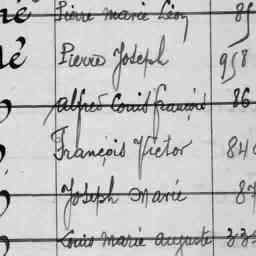 Pierre Marie Léon 85
é Pierre Joseph 958
Alfred Louis François 86
François Victor 840
Joseph Marie 87
Louis Marie Auguste 333